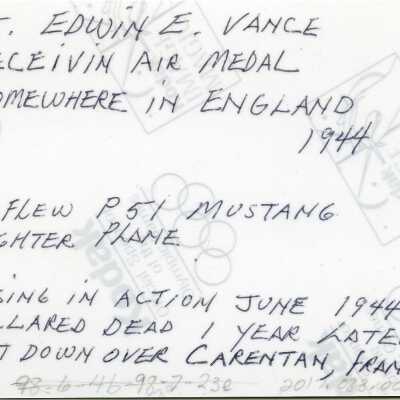 T. EDWIN E. VANCE
ECEIVIN AIR MEDAL
OMEWHERE IN ENGLAND
1944
FLEW P51 MUSTANG
GHTER PLANE
SING IN ACTION JUNE 1944
CLARED DEAD 1 YEAR LATE
T DOWN OVER CARENTAN, FRAN
93-6-46-93-7-230